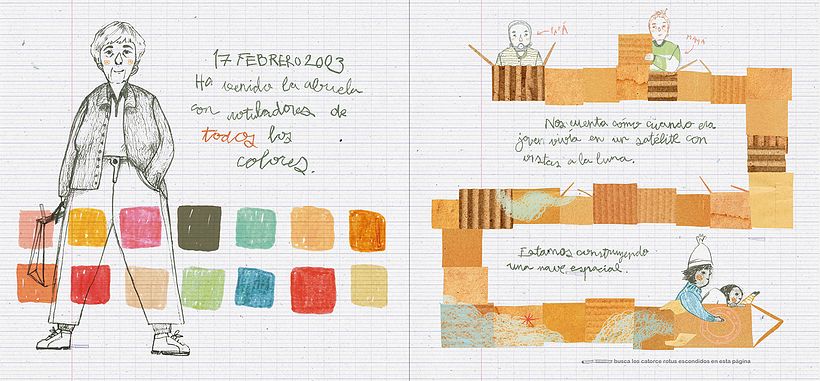 17 FEBRERO 2003
Ha venido la abuela
con rotuladores de
todos los
colores.
PAPÁ
MAMÁ
Nos cuenta cómo cuando era
joven vivía en un satélite con
vistas a la luna.
Estamos construyendo
una nave espacial.
busca los catorce rotus escondidos en esta página